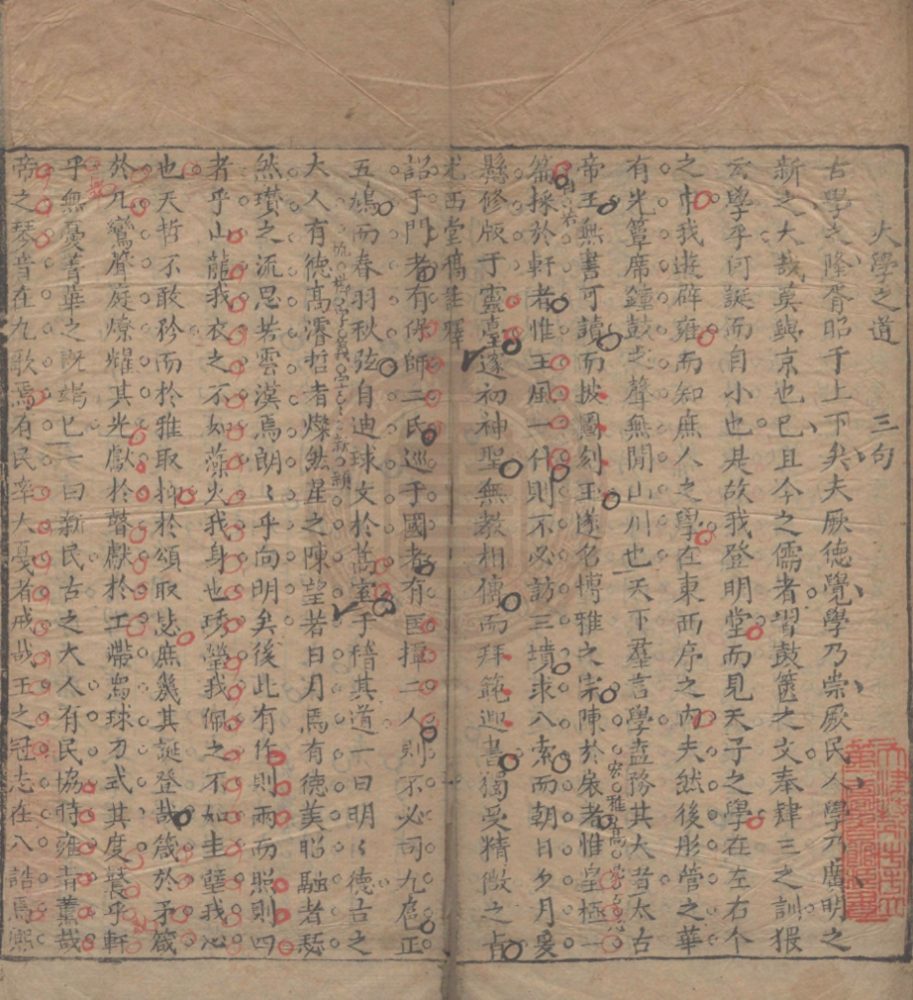 大學之道 三句
古學之隆胥昭于上下矣夫厥德覺學乃崇厥民人學乃廣明之
新之大哉莫與京也已且今之儒者習鼓篋之文奉肄三之訓猥
云學乎何誕而自小也是故我登明堂而見天子之學在左右个
之中我遊辟雍而知庶人之學在東西序之內夫然後彤管之華
有光簟席鐘鼓之聲無閒山川也天下羣言學盍務其大者太古
帝王無書可讀而披圖刻玉遂名博雅之宗陳於扆者惟皇極一
篇採於軒者惟王風一什則不必訪三墳求八索而朝日夕月爰
縣修版于靈臺邃初神聖無教相傳而拜範迎書獨受精微之占
尤西堂稿
詔于門者有保師二氏巡于國者有匡撢二人則不必司九扈正
五鳩而春羽秋弦自迪球文於萬室于稽其道一曰明〻德古之
大人有德高濬哲者燦然星之陳望若日月焉有德美昭融者瑟
然瓚之流思若雲漢焉朗〻乎向明矣後此有作則兩而照則四
者乎山龍我衣之不如藻火我身也琇瑩我佩之不如圭璧我心
也天哲不敢矜而於雅取抑於頌取毖庶幾其誕登哉箴於矛箴
於几鸞聲庭燎耀其光獻於瞽獻於工鞶舄球刀式其度襲乎軒
乎無憂菁華之既竭已一曰新民古之大人有民協時雍者薰哉
帝之琴音在九歌焉有民率大戛者戒哉王之冠志在八誥焉熙